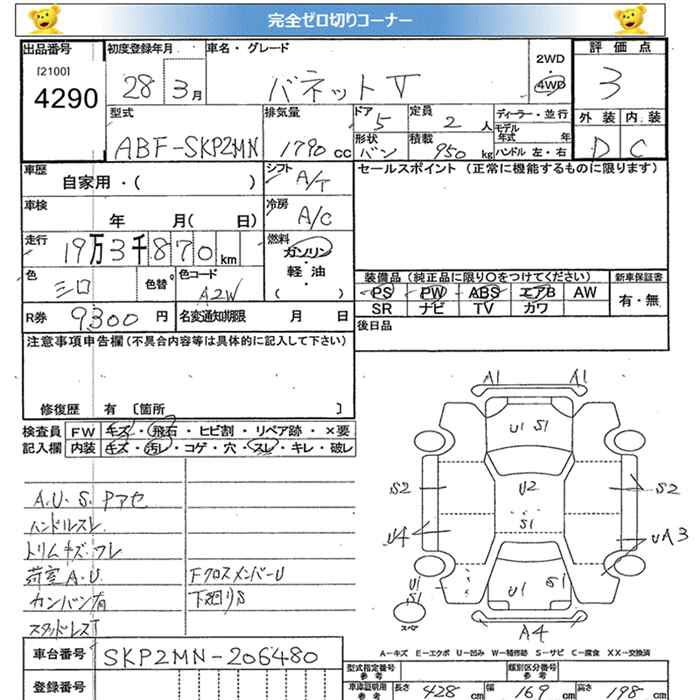 完全ゼロ切りコーナー
出品番号 初度登録年月 車名・グレード 2WD 評価点
[2100] 4290 28 3月 バネットV 4WD 3
型式 排気量 ドア 定員 ディーラー・並行 外装 内装
ABF-SKP2MN 1790 cc 5 2 人 モデル年式 年 D C
形状 積載 ハンドル 左・右
バン 950 kg
車歴 シフト セールスポイント (正常に機能するものに限ります)
自家用・( ) A/T
車検 冷房
年 月( 日) A/C
走行 燃料
19万3千870km ガソリン
軽・油
( )
色 色替 色コード 装備品 (純正品に限り○をつけてください) 新車保証書
シロ A2W PS PW ABS エアB AW 有・無
SR ナビ TV カワ
R券 9300円 名変通知期限 月 日 後日品
注意事項申告欄(不具合内容等は具体的に記入して下さい)
修復歴 有 〔箇所 〕
検査員 FW キズ・飛石・ヒビ割・リペア跡・×要
記入欄 内装 キズ・汚レ・コゲ・穴・スレ・キレ・破レ
A1 A1
U1 S1
S2 U2 S2
U4 S1 UA3
U1 S1 U1 S1
スペア A4
A.U.S.Pアセ
ハンドルスレ
トリムキズ.ワレ
荷室A.U. FクロスメンバーU
カンバン有 下廻りS
スタッドレス
A-キズ E-エクボ U-凹み W-補修跡 S-サビ C-腐食 XX-交換済
車台番号 SKP2MN-206480
登録番号
型式指定番号 参考 類別区分番号 参考
車庫証明用 参考 長さ 428 cm 幅 169 cm 高さ 198 cm